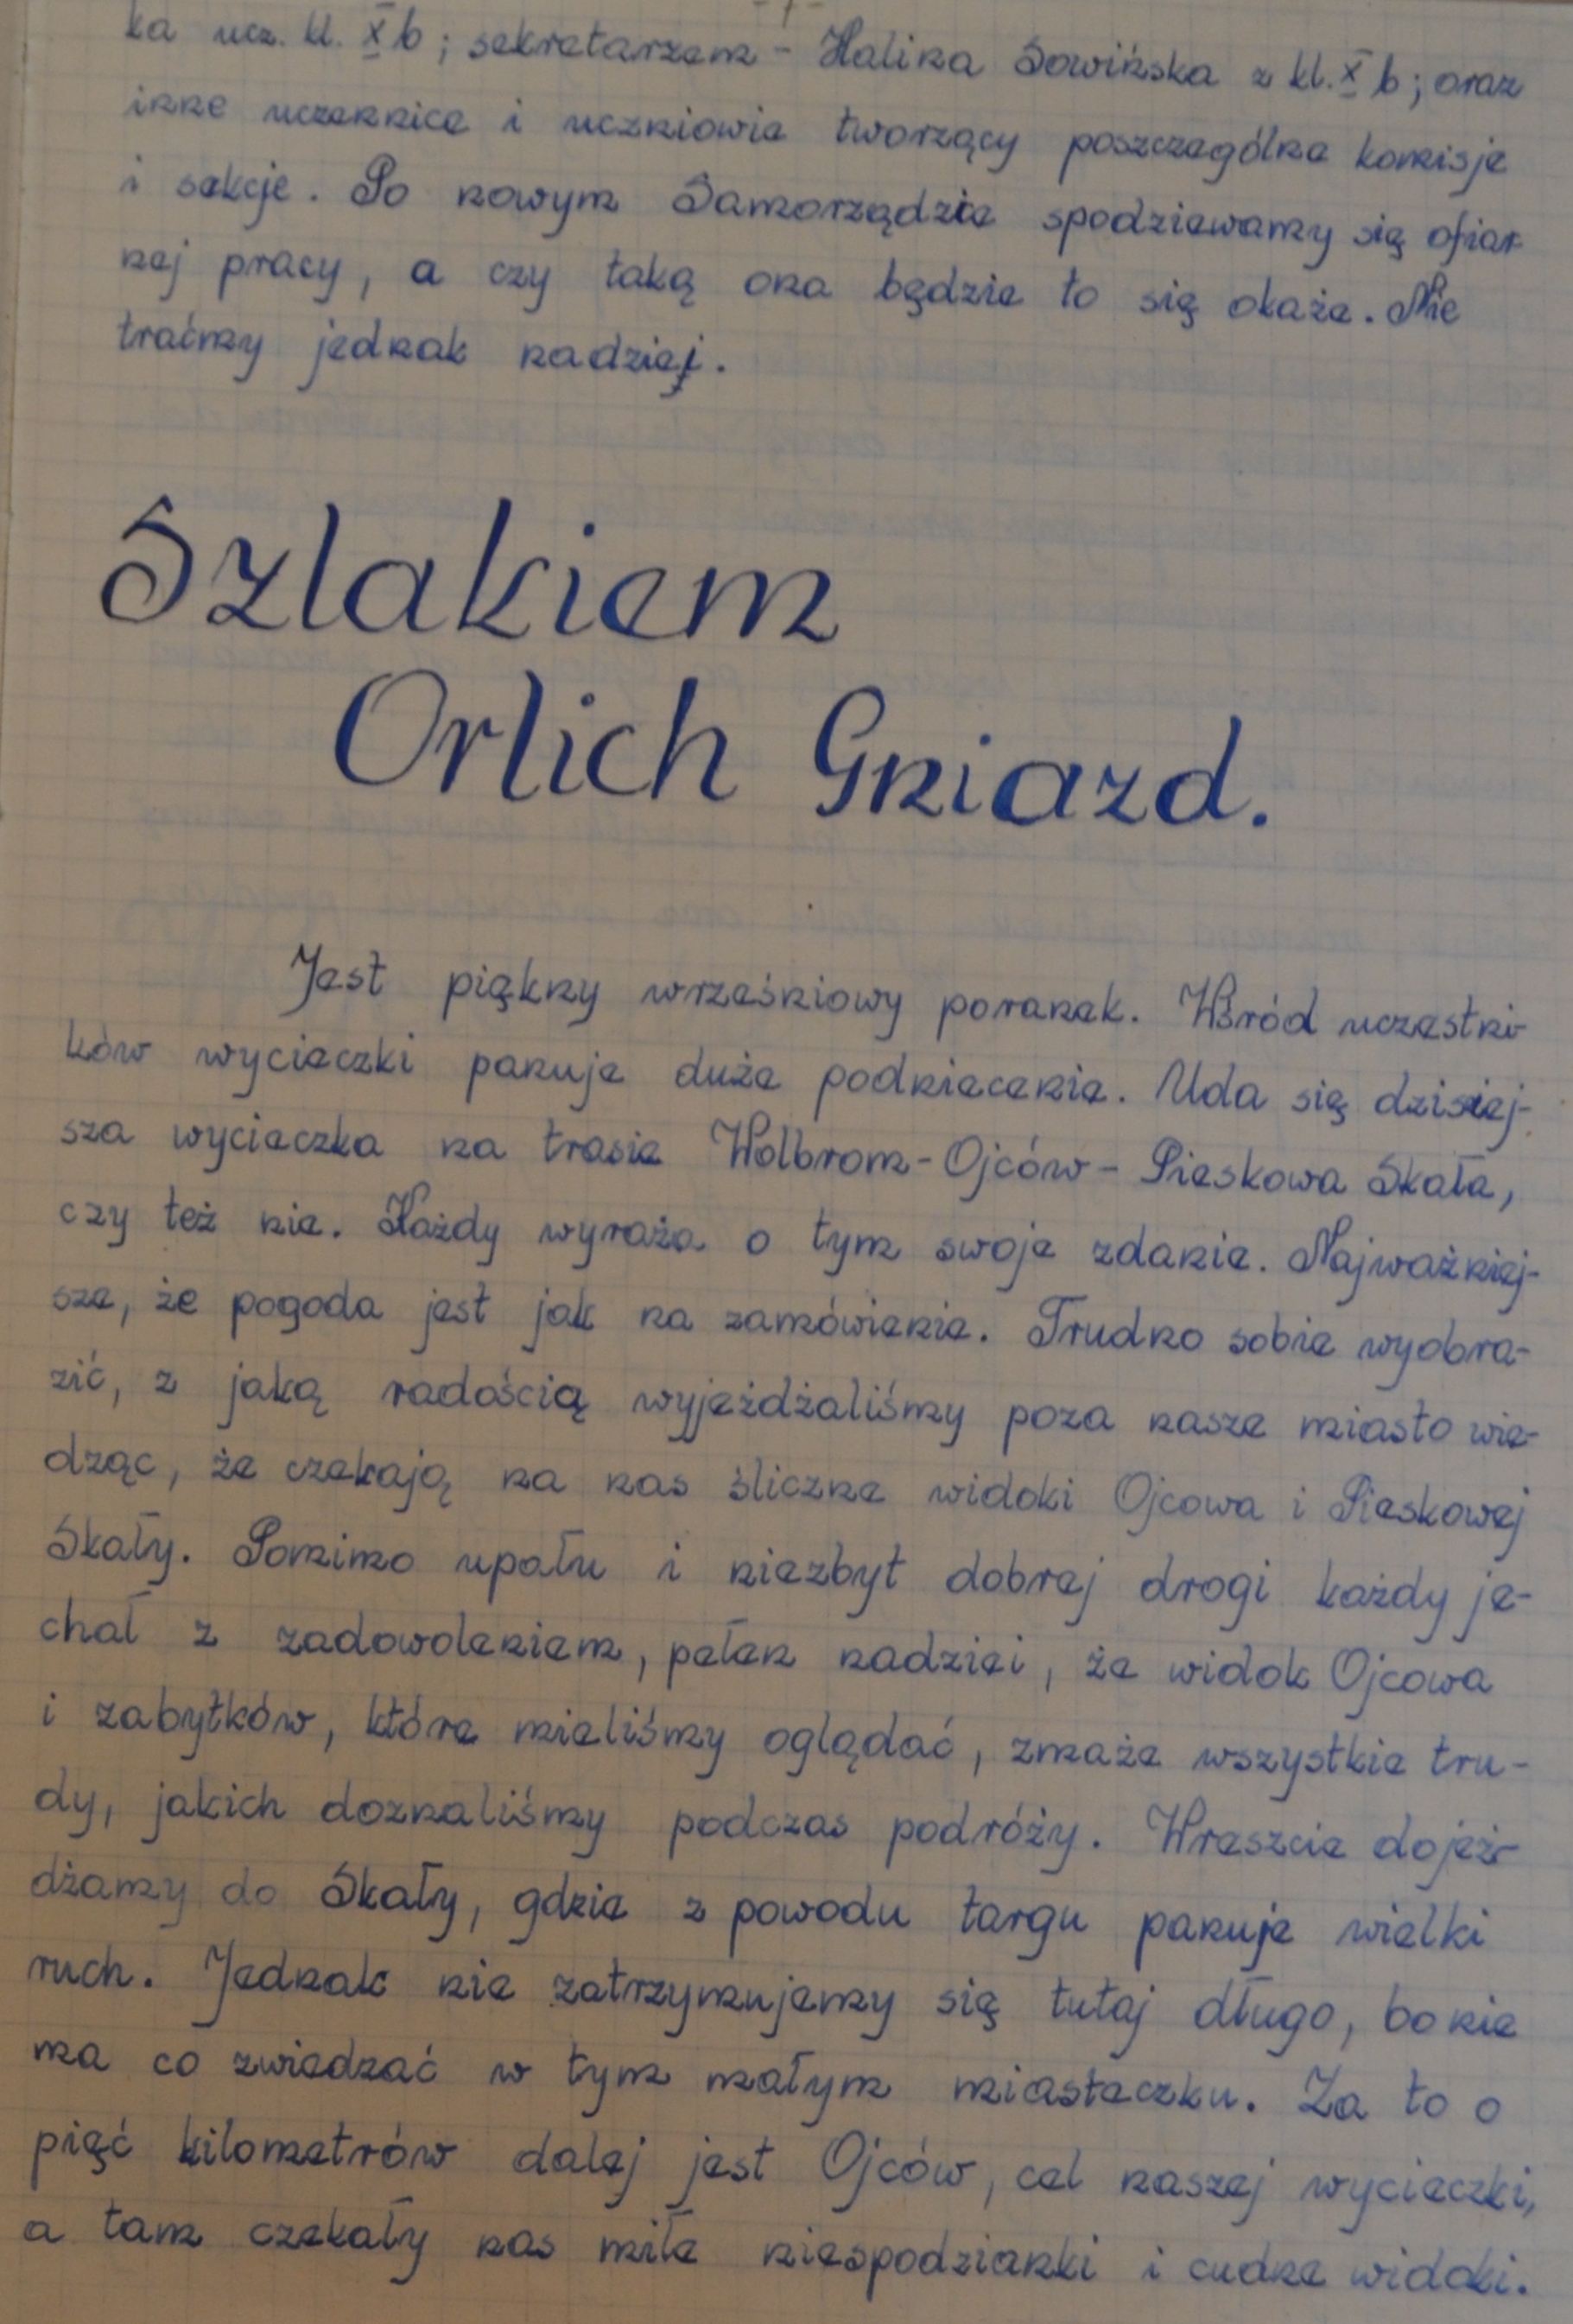 - 7 -
ka ucz. kl. X b; sekretarzem - Halina Sowińska z kl. X b; oraz
inne uczennice i uczniowie tworzący poszczególne komisje
i sekcje. Po nowym Samorządzie spodziewamy się ofiar-
nej pracy, a czy taką ona będzie to się okaże. Nie
traćmy jednak nadzieji.
Szlakiem
Orlich Gniazd.
Jest piękny wrześniowy poranek. Wśród uczestni-
ków wycieczki panuje duże podniecenie. Uda się dzisiej-
sza wycieczka na trasie Wolbrom - Ojców - Pieskowa Skała,
czy też nie. Każdy wyraża o tym swoje zdanie. Najważniej-
sze, że pogoda jest jak na zamówienie. Trudno sobie wyobra-
zić, z jaką radością wyjeżdżaliśmy poza nasze miasto wie-
dząc, że czekają na nas śliczne widoki Ojcowa i Pieskowej
Skały. Pomimo upału i niezbyt dobrej drogi każdy je-
chał z zadowoleniem, pełen nadziei, że widok Ojcowa
i zabytków, które mieliśmy oglądać, zmaże wszystkie tru-
dy, jakich doznaliśmy podczas podróży. Wreszcie dojeż-
dżamy do Skały, gdzie z powodu targu panuje wielki
ruch. Jednak nie zatrzymujemy się tutaj długo, bo nie
ma co zwiedzać w tym małym miasteczku. Za to o
pięć kilometrów dalej jest Ojców, cel naszej wycieczki,
a tam czekały nas miłe niespodzianki i cudne widoki.